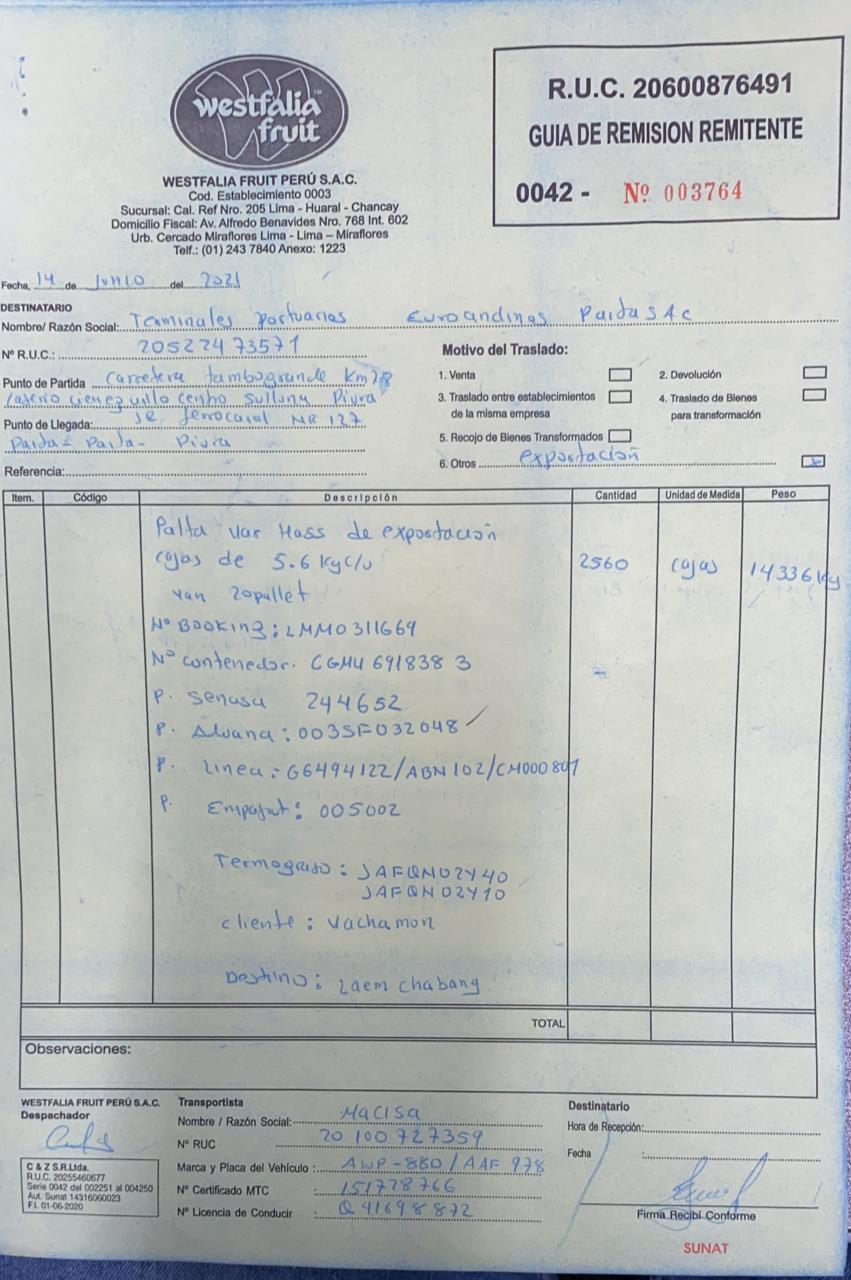 westfalia™
fruit
WESTFALIA FRUIT PERÚ S.A.C.
Cod. Establecimiento 0003
Sucursal: Cal. Ref Nro. 205 Lima - Huaral - Chancay
Domicilio Fiscal: Av. Alfredo Benavides Nro. 768 Int. 602
Urb. Cercado Miraflores Lima - Lima – Miraflores
Telf.: (01) 243 7840 Anexo: 1223
R.U.C. 20600876491
GUIA DE REMISION REMITENTE
0042 - Nº 003764
Fecha, 14 de Junio del 2021
DESTINATARIO
Nombre/ Razón Social: Terminales portuarios Euroandinos Paita SAC
Nº R.U.C.: 20522473571
Punto de Partida Carretera tambogrande Km
Sullana Piura
Punto de Llegada: Jr ferrocarril NR 127
Paita - Paita - Piura
Referencia:
Motivo del Traslado:
1. Venta
2. Devolución
3. Traslado entre establecimientos
de la misma empresa
4. Traslado de Bienes
para transformación
5. Recojo de Bienes Transformados
6. Otros exportación
Item. Código Descripción Cantidad Unidad de Medida Peso
Palta var Hass de exportación
cajas de 5.6 kg c/u 2560 cajas 14336 kg
van 20 pallet
Nº Booking: LMM0311669
Nº contenedor. CGMU 691838 3
P. Senasa 244652
P. Aduana: 003SF032048
P. Linea: G6494122/ABN102/CM000801
P. : 005002
: JAFQN02Y40
JAFQN02Y10
cliente: Vachamon
Destino: Laem chabang
TOTAL
Observaciones:
WESTFALIA FRUIT PERÚ S.A.C.
Despachador
C & Z S.R.Ltda.
R.U.C. 20255460677
Serie 0042 del 002251 al 004250
Aut. Sunat 14316060023
F.I. 01-06-2020
Transportista
Nombre / Razón Social: Macisa
Nº RUC 20100727359
Marca y Placa del Vehículo: AWP-880 / AAF 978
Nº Certificado MTC : 151728766
Nº Licencia de Conducir : Q41698872
Destinatario
Hora de Recepción:
Fecha :
Firma Recibí Conforme
SUNAT